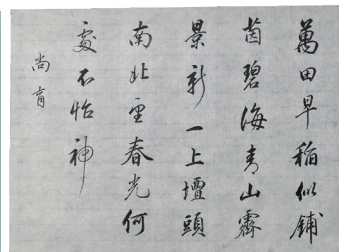 萬田早稲似鋪
茵碧海青山霽
景新一上壇頭
南北望春光何
處不怡神
尚育